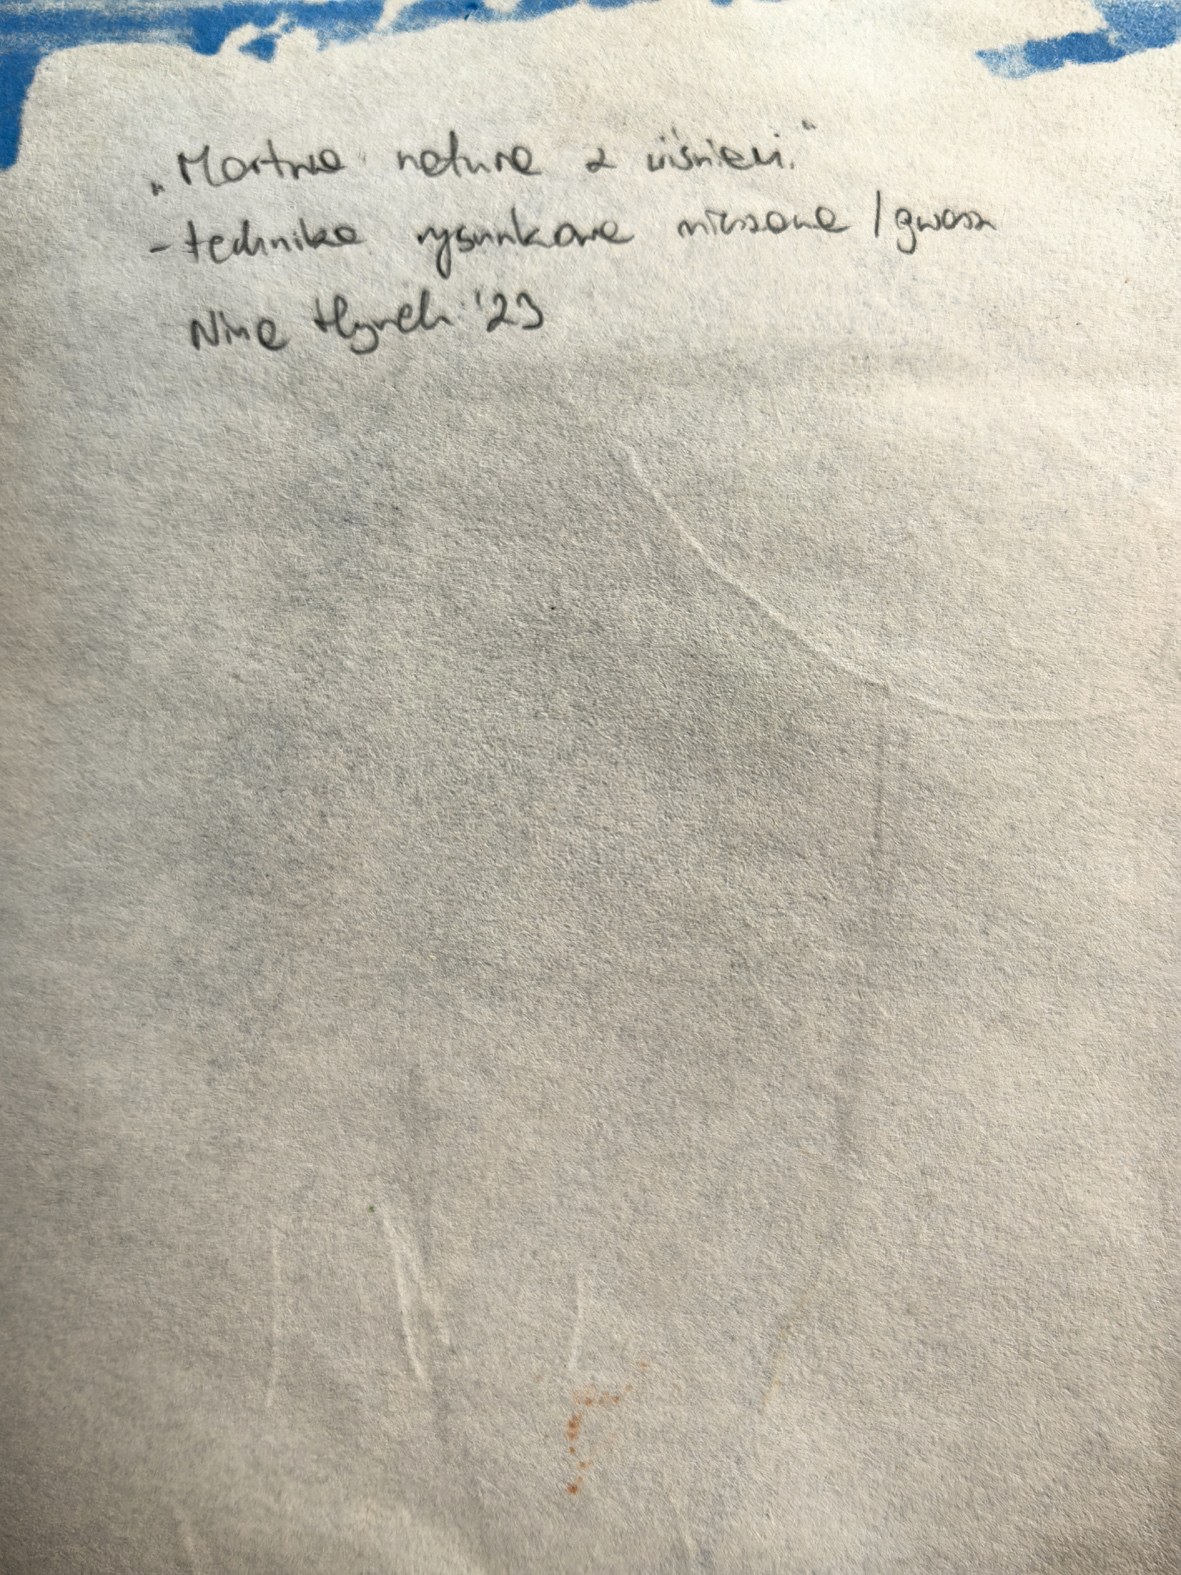 „Martwa natura z wiśniami."
- technika rysunkowa mieszana / gwasz
Nina '23